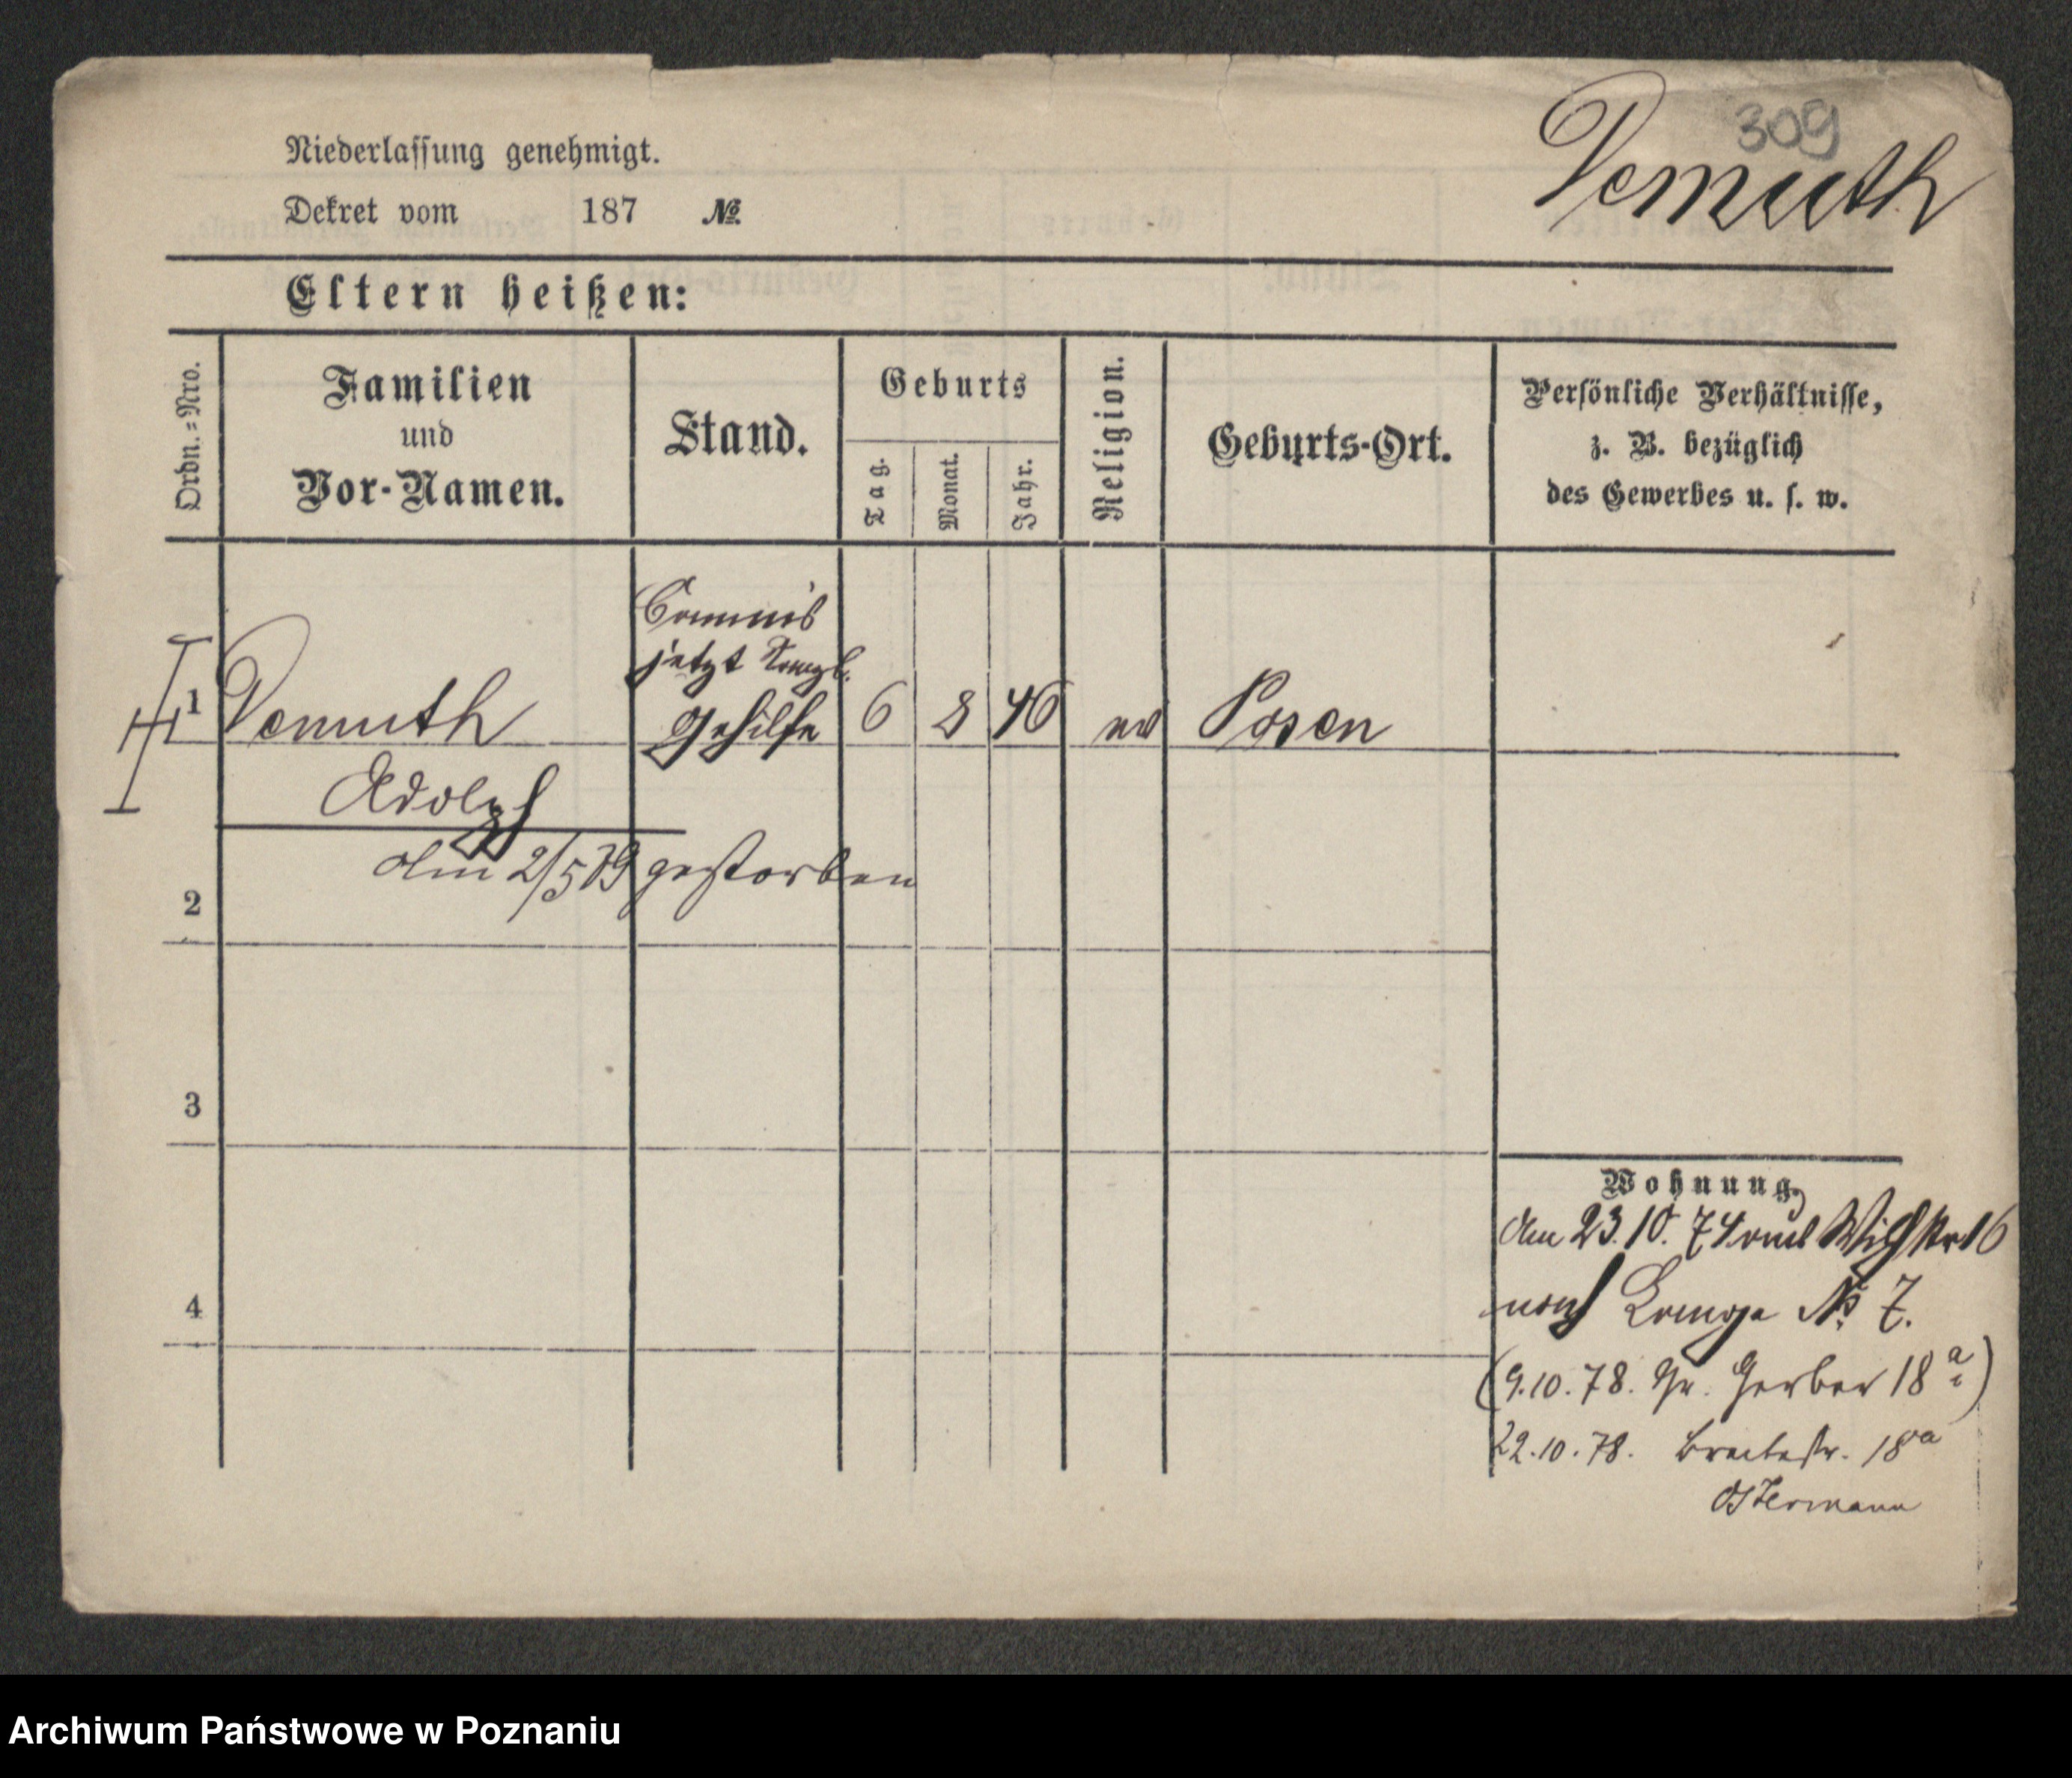 309
Demuth
Niederlassung genehmigt.
Dekret vom 187 №
Eltern heißen:
Ordn.=Nro.
Familien
und
Vor-Namen.
Stand.
Geburts
Tag.
Monat.
Jahr.
Religion.
Geburts-Ort.
Persönliche Verhältnisse,
z. B. bezüglich
des Gewerbes u. s. w.
Commis
jetzt Kanzl.
1 Demuth Gehilfe 6 8 46 ev Posen
Adolph
am 2/5 79 gestorben
2
3
4
Wohnung.
Am 23.10.74 16
nach Lange № 7.
(9.10.78. Gr. Gerber 18 a)
22.10.78. Breitestr. 18 a
Ostermann
Archiwum Państwowe w Poznaniu